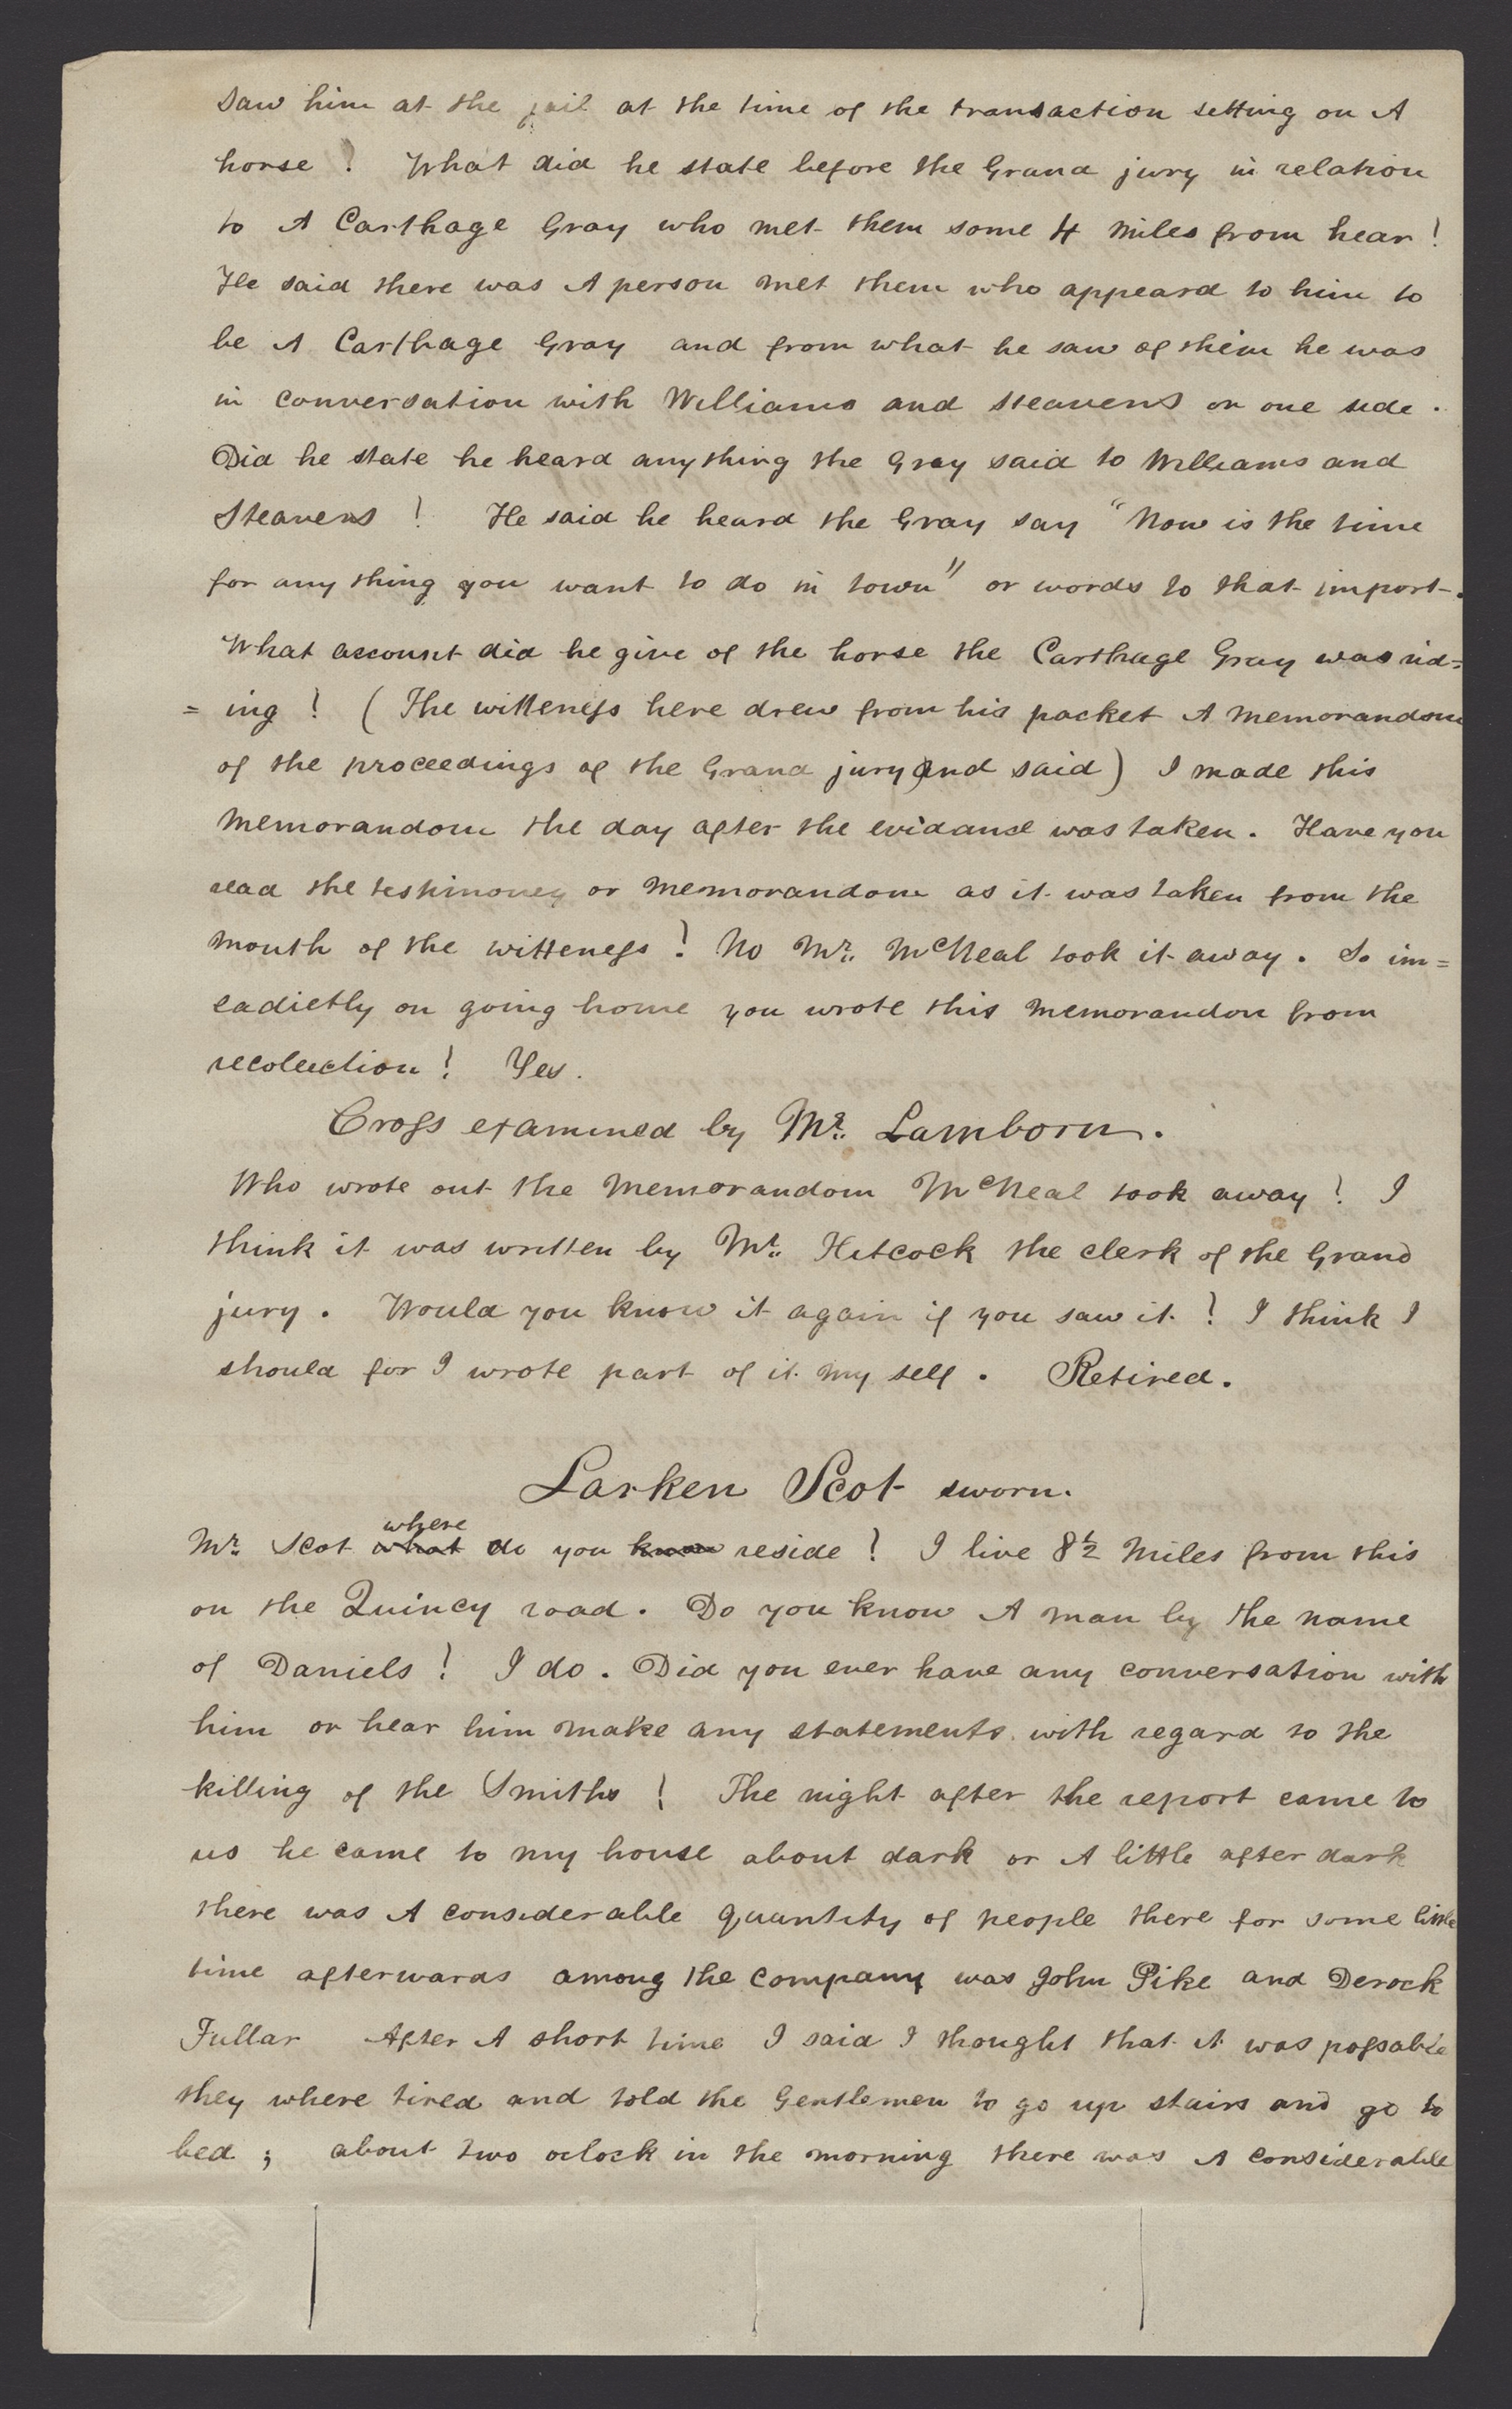 saw him at the jail at the time of the transaction setting on A
horse ! What did he state before the Grand jury in relation
to A Carthage Gray who met them some 4 miles from hear !
He said there was A person met them who appeard to him to
be A Carthage Gray and from what he saw of them he was
in conversation with Williams and Steavens on one side .
Did he state he heard any thing the Gray said to Williams and
Steavens ! He said he heard the Gray say "Now is the time
for any thing you want to do in town" or words to that import.
What account did he give of the horse the Carthage Gray was rid=
= ing ! ( The witteness here drew from his pocket A memorandom
of the proceedings of the Grand jury) and said) I made this
memorandom the day after the evidance was taken . Have you
read the testimoney or memorandom as it was taken from the
mouth of the witteness ! No Mr. McNeal took it away . So im=
eadietly on going home you wrote this memorandon from
recolection ! Yes .
Cross examined by Mr. Lamborn .
Who wrote out the memorandom McNeal took away ! I
think it was written by Mr. Hitcock the clerk of the Grand
jury . Would you know it again if you saw it ! I think I
should for I wrote part of it my self . Retired .
Larken Scot sworn .
where
Mr. Scot what do you know reside ! I live 8½ miles from this
on the Quincy road . Do you know A man by the name
of Daniels ! I do . Did you ever have any conversation with
him or hear him make any statements with regard to the
killing of the Smiths ! The night after the report came to
us he came to my house about dark or A little after dark
there was A considerable quantity of people there for some little
time afterwards among the company was John Pike and Derock
Fullar After A short time I said I thought that it was possable
they where tired and told the Gentlemen to go up stairs and go to
bed ; about two oclock in the morning there was A considerable